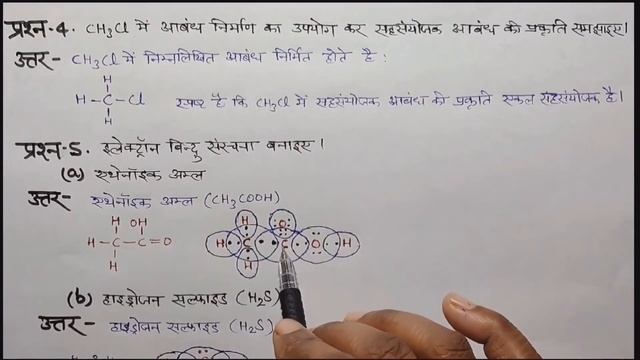 प्रश्न-4. CH3Cl में आबंध निर्माण का उपयोग कर सहसंयोजक आबंध की प्रकृति समझाइए।
उत्तर- CH3Cl में निम्नलिखित आबंध निर्मित होते है:
H
H-C-Cl
H
स्पष्ट है कि CH3Cl में सहसंयोजक आबंध की प्रकृति एकल सहसंयोजक है।
प्रश्न-5. इलेक्ट्रॉन बिन्दु संरचना बनाइए।
(a) एथेनॉइक अम्ल
उत्तर- एथेनॉइक अम्ल (CH3COOH)
H OH
H-C-C=O
H
H O
H C C O H
H
(b) हाइड्रोजन सल्फाइड (H2S)
उत्तर- हाइड्रोजन सल्फाइड (H2S)